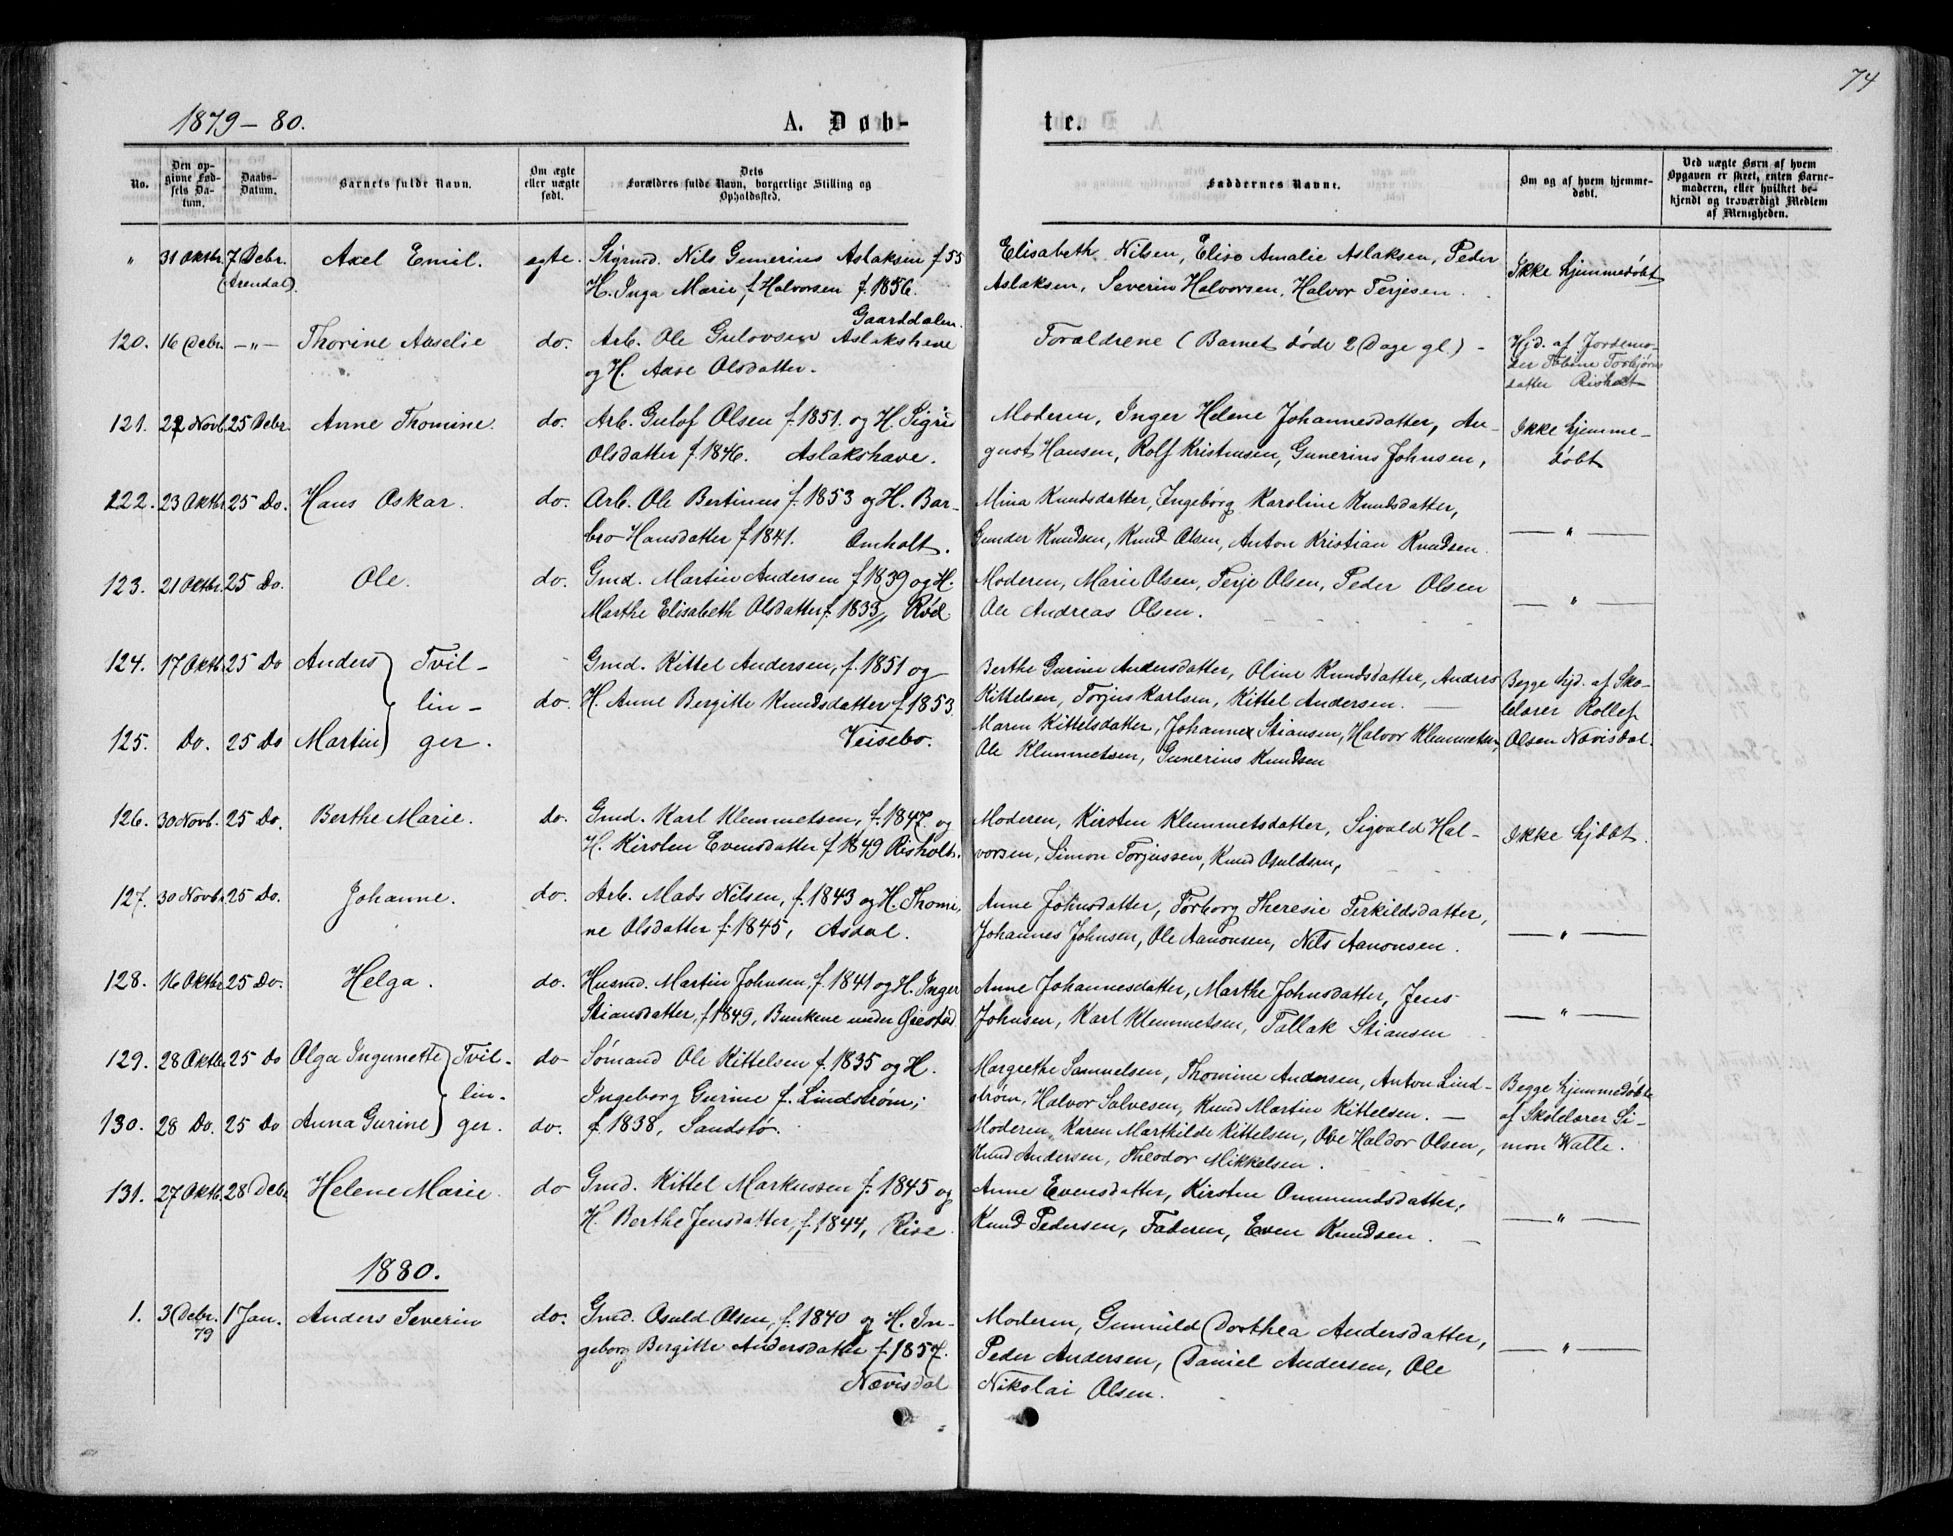 74
1879-80. A. Døb- te.
No. Den opgivne Fødsels Datum. Daabs-Datum. Barnets fulde Navn. Om ægte eller uægte født. Dets Forældres fulde Navn, borgerlige Stilling og Opholdssted. Faddernes Navne. Om og af hvem hjemmedøbt. Ved uægte Børn af hvem Opgaven er skeet, enten Barnemoderen, eller hvilket bekjendt og troværdigt Medlem af Menigheden.
" 31 Oktbr. 7 Debr. Axel Emil. egte. Sigmd. Nils Gunerius Aslaksen f 55 Elisabeth Nilsen, Elise Amalie Aslaksen, Peder Ikke hjemmedøbt
(Arendal). H. Inga Marie f. Halvorsen f. 1856. Aslaksen, Severin Halvorsen, Halvor Terjesen.
Gaarddalen.
120. 16 Debr. —"— Thorine Amelie do. Arb. Ole Gulovsen Aslakshave Forældrene (Barnet døde 2 Dage gl.) - Hjd. af Jordemo-
og H. Aase Olsdatter. der Torbjørns
datter Risholt
121. 22 Novb. 25 Debr. Anne Thomine. do. Arb. Gulof Olsen f. 1851. og H. Sigrid Moderen, Inger Helene Johannesdatter, Au- Ikke hjemme-
Olsdatter f. 1846. Aslakshave. gust Hansen, Rolf Kristensen, Gunerius Johnsen, døbt
122. 23 Oktbr. 25 Do. Hans Oskar. do. Arb. Ole Bertinius f. 1853 og H. Bar- Mina Knudsdatter, Ingeborg Karoline Knudsdatter,
bro Hansdatter f 1841. Omholt. Gunder Knudsen, Knud Olsen, Anton Kristian Knudsen. — " —
123. 21 Oktbr. 25 Do. Ole. do. Gmd. Martin Andersen f 1839 og H. Moderen, Marie Olsen, Terje Olsen, Peder Olsen
Marthe Elisabeth Olsdatter f. 1833, Röd Ole Andreas Olsen. — " —
124. 17 Oktb. 25 Do Anders } Tvil- Gmd. Kittel Andersen, f. 1851 og Berthe Gurine Andersdatter, Oline Knudsdatter, Anders Begge hjd. af Sko-
lin- do. H. Anne Bergitte Knudsdatter f 1853. Kittelsen, Torjus Karlsen, Kittel Andersen. — lelærer Rollef
125. Do. 25 Do Martin } ger. Veisebo. Maren Kittelsdatter, Johannes Stiansen, Halvor Klemmetsen, Olsen Nævisdal.
Ole Klemmetsen, Gunerius Knudsen
126. 30 Novb. 25 Do. Berthe Marie. do. Gmd. Karl Klemmetsen, f. 1847. og Moderen, Kirsten Klemmetsdatter, Sigvald Hal- Ikke hjdbt.
H. Kirsten Evensdatter f 1849 Risholt. vorsen, Simon Torjussen, Knud Osuldsen,
127. 30 Novb. 25 Do. Johanne. do. Arb. Mads Nilsen, f. 1843 og H. Thomi- Anne Johnsdatter, Torborg Theresie Terkildsdatter,
ne Olsdatter f. 1845, Asdal. Johannes Johnsen, Ole Aanonsen, Nils Aanonsen. — " —
128. 16 Oktbr 25 Do. Helga. do. Husmd. Martin Johnsen, f. 1841 og H. Inger Anne Johannesdatter, Marthe Johnsdatter, Jens
Stiansdatter, f 1849, Bunkene under Øiestad Johnsen, Karl Klemmetsen, Tallak Stiansen — " —
129. 28 Oktbr 25 Do Olga Ingunette } Tvil- do- Sømand Ole Kittelsen f. 1835 og H. Margrethe Samuelsen, Thomine Andersen, Anton Lind- Begge hjemmedøbte
lin- Ingeborg Gurine f. Lindstrøm; strøm, Halvor Salvesen, Knud Martin Kittelsen. — af Skolelærer Si-
130. 28 Do. 25 Do Anna Gurine } ger. do. f. 1838, Sandstø. Moderen, Karen Marthilde Kittelsen, Ove Haldor Olsen, mon Walle.
Knud Andersen, Theodor Mikkelsen.
131. 27 Oktb. 28 Debr Helene Marie. do Gmd. Kittel Markussen f. 1845 og Anne Evensdatter, Kirsten Ommundsdatter,
H. Berthe Jensdatter, f. 1844, Rise. Knud Pedersen, Faderen, Even Knudsen. — " —
1880.
1. 3 Debr. 79 1 Jan. Anders Severin do. Gmd. Osuld Olsen, f. 1840 og H. In- Moderen, Gunuld Dorthea Andersdatter,
geborg Bergitte Andersdatter f. 1857. Peder Andersen, Daniel Andersen, Ole — " —
Nævisdal Nikolai Olsen.